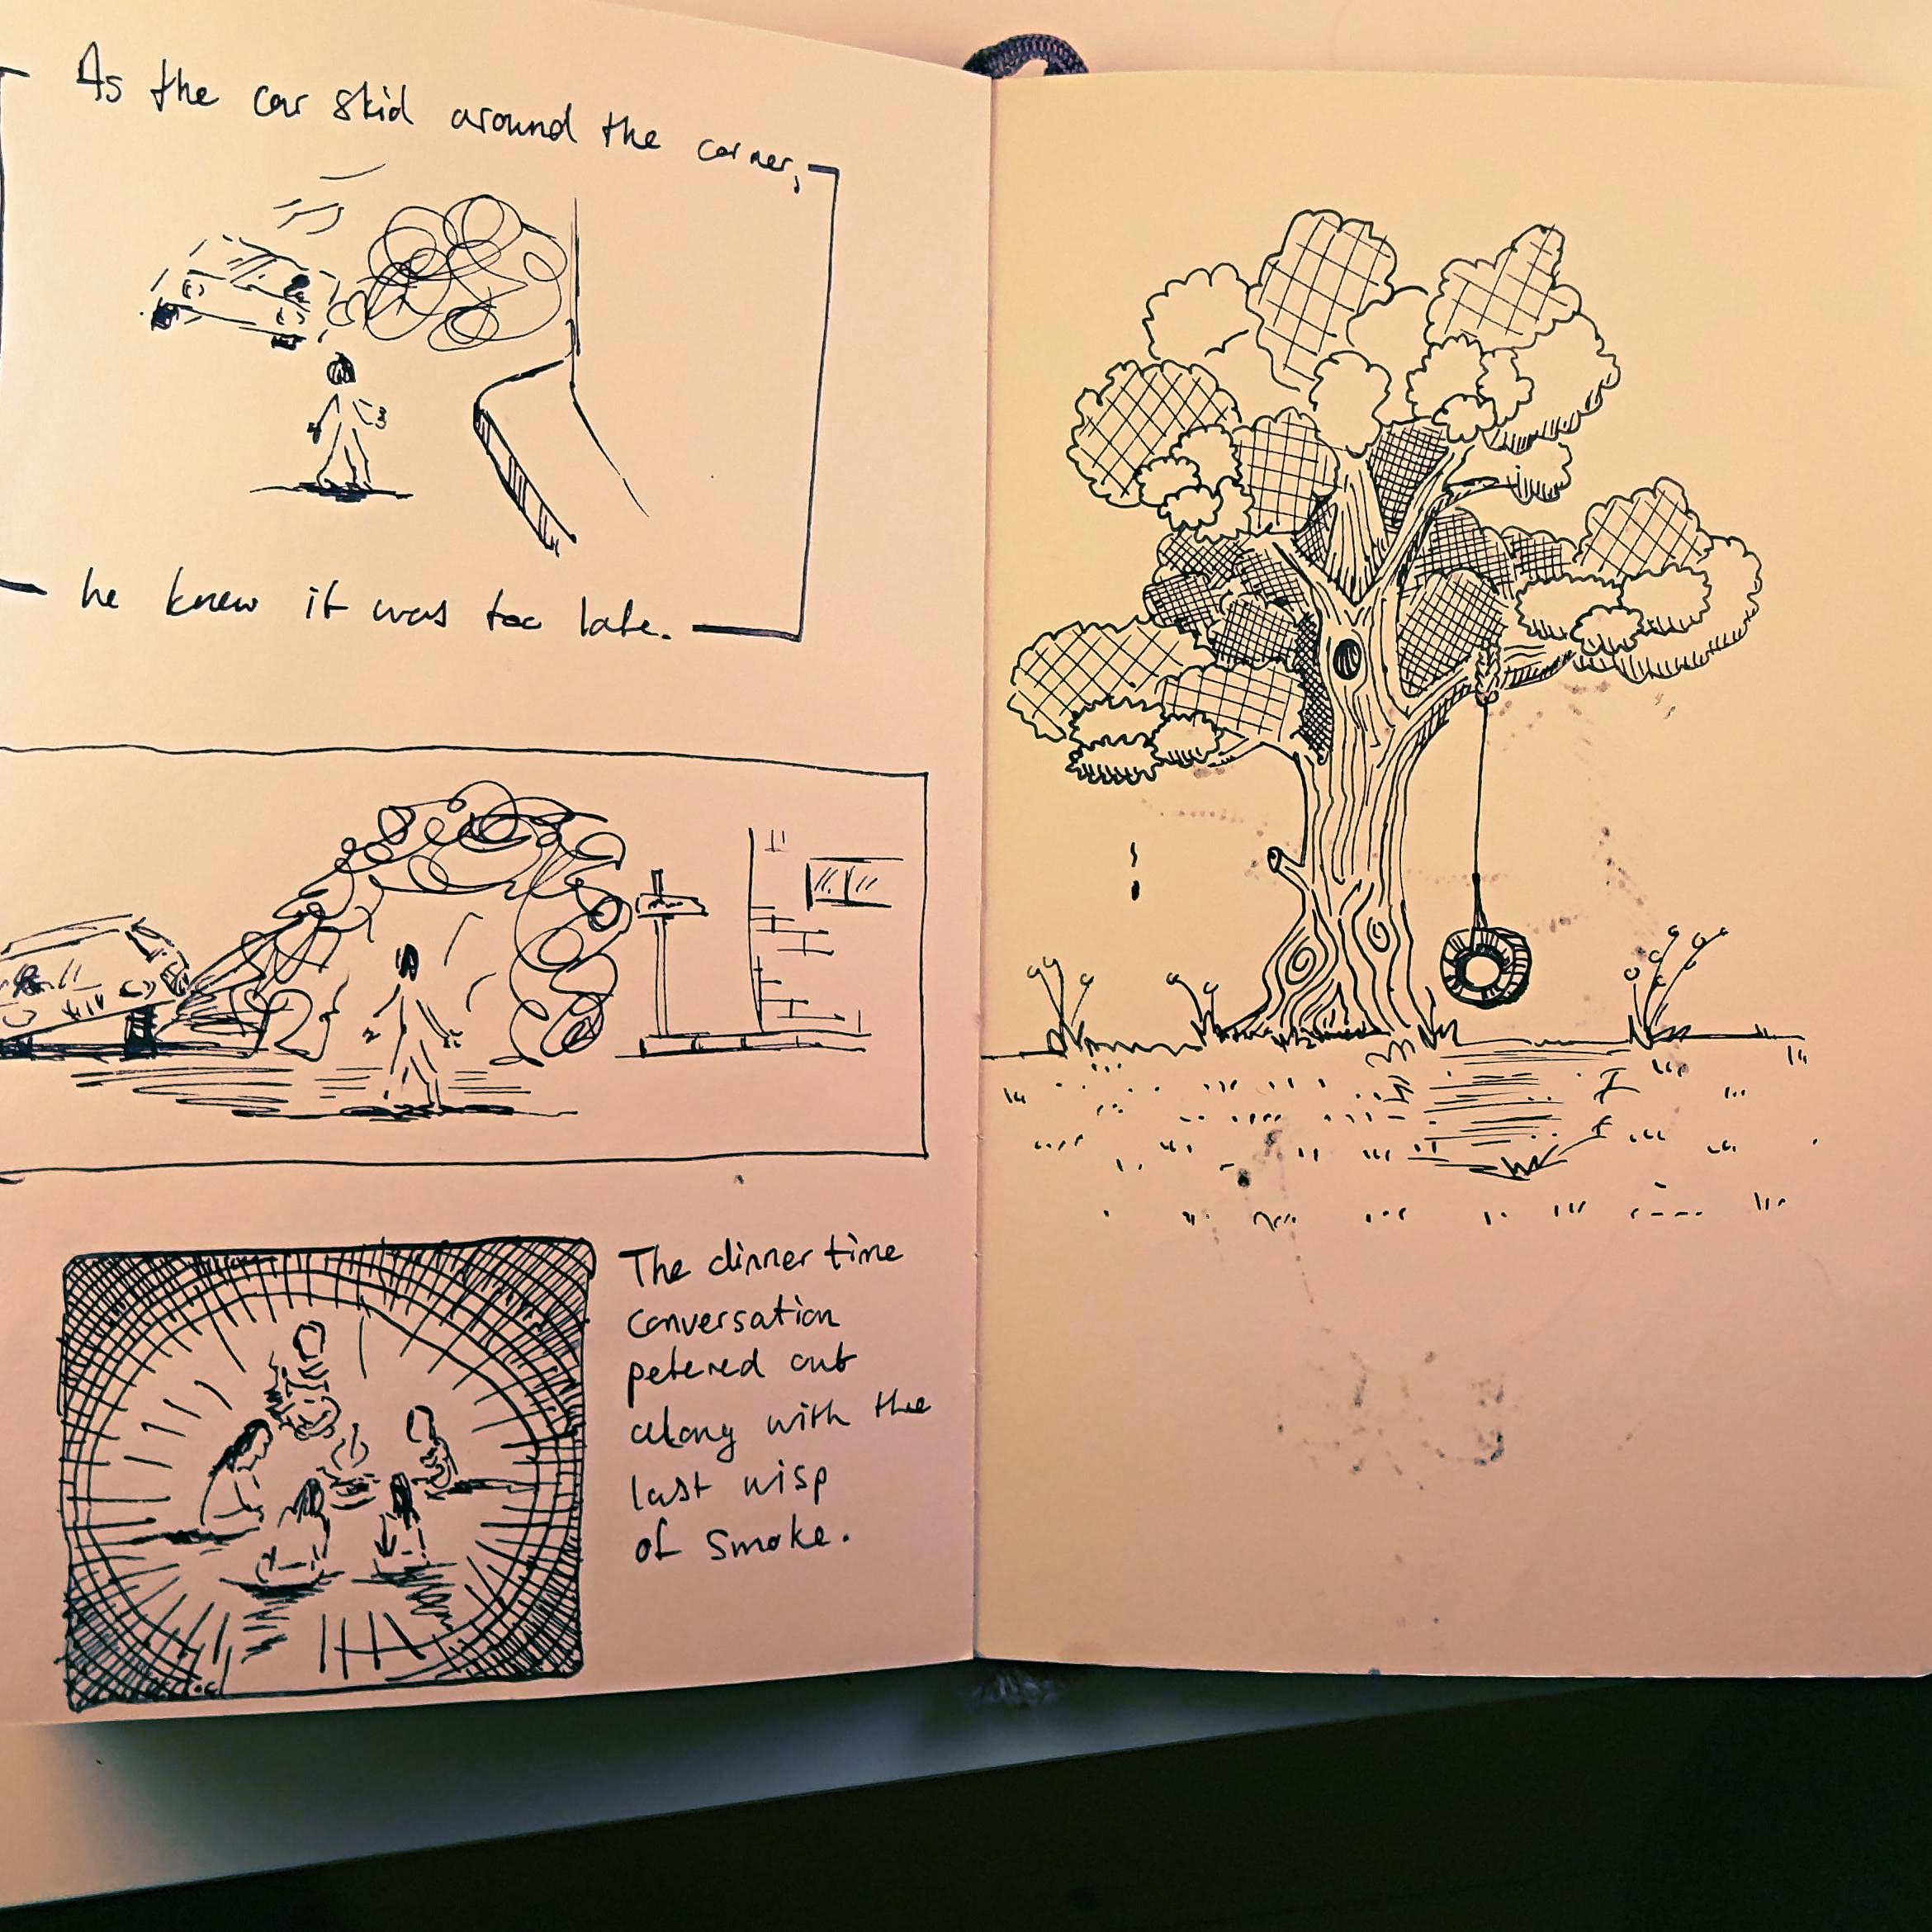 As the car skid around the corner,
he knew it was too late.
The dinner time
conversation
petered out
along with the
last wisp
of smoke.